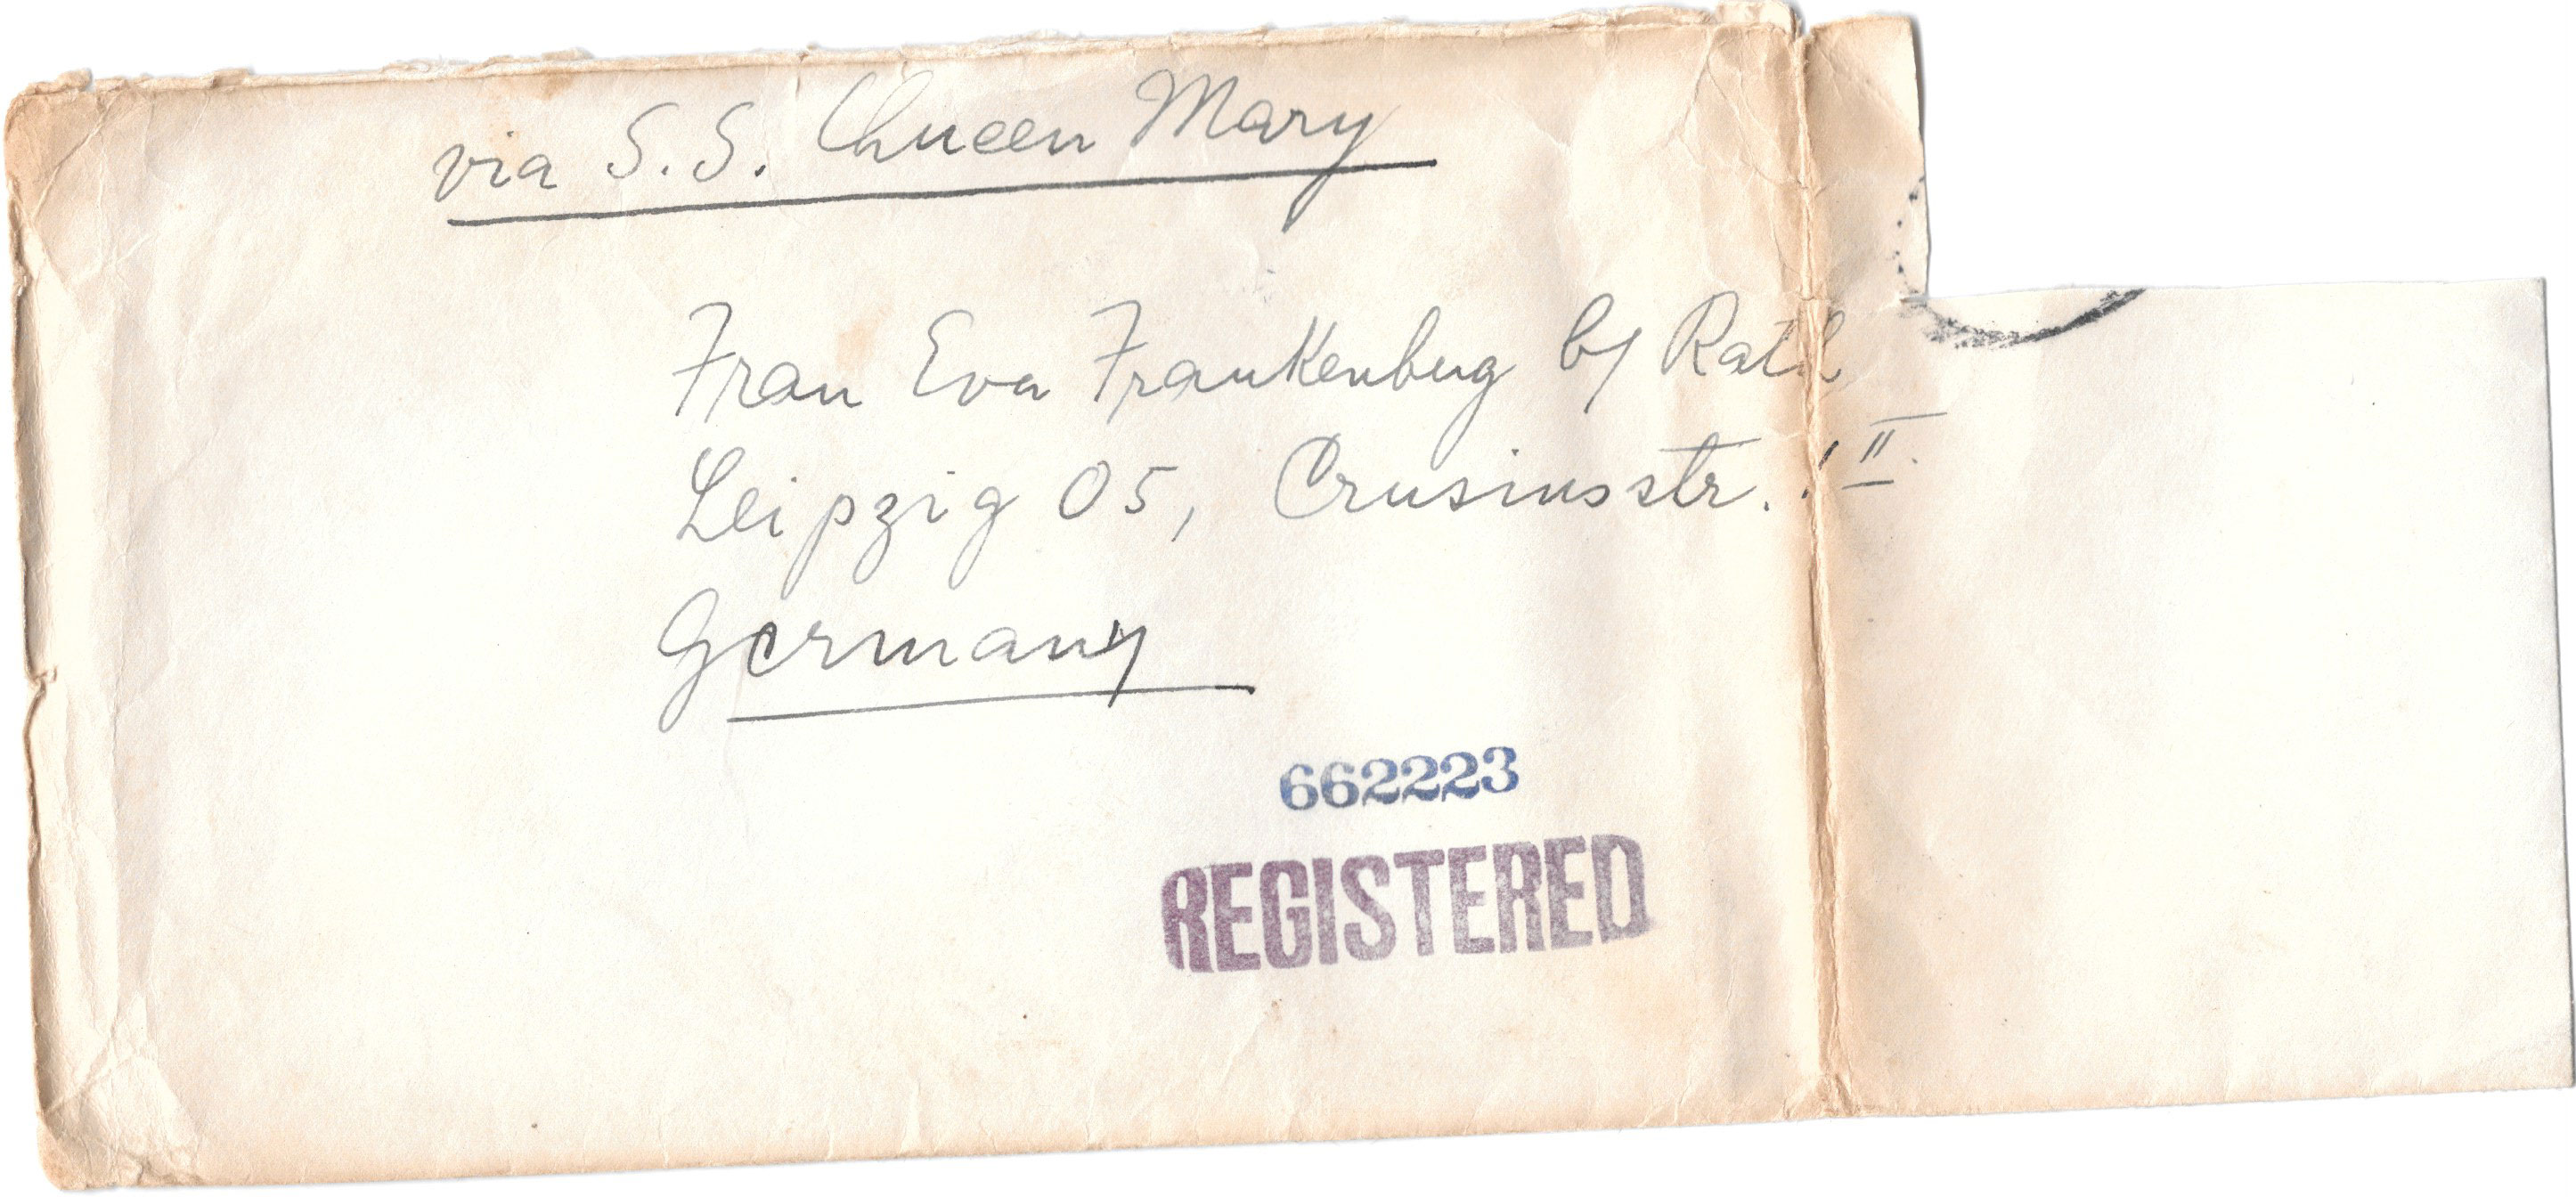 via S.S. Queen Mary
Frau Eva Frankenberg b/ Rath
Leipzig O5, Crusiusstr. II.
Germany
662223
REGISTERED